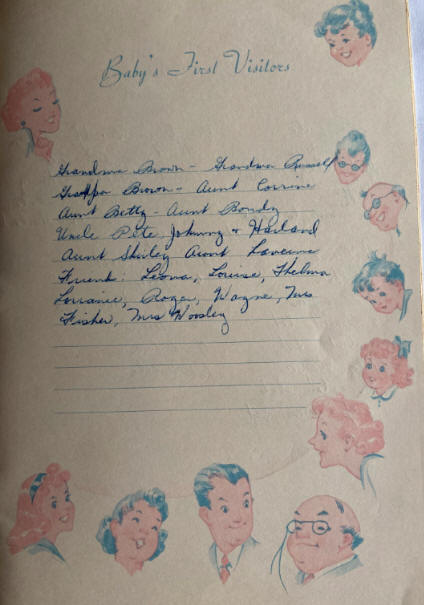 Baby's First Visitors
Grandma Brown - Grandma Russell
Grandpa Brown - Aunt Corrine
Aunt Betty - Aunt
Uncle Pete, Johnny + Harland
Aunt Shirley Aunt Laverne
Friends: Leona, Louise, Thelma
Lorraine, Roger, Wayne, Mrs
Fisher, Mrs Woosley